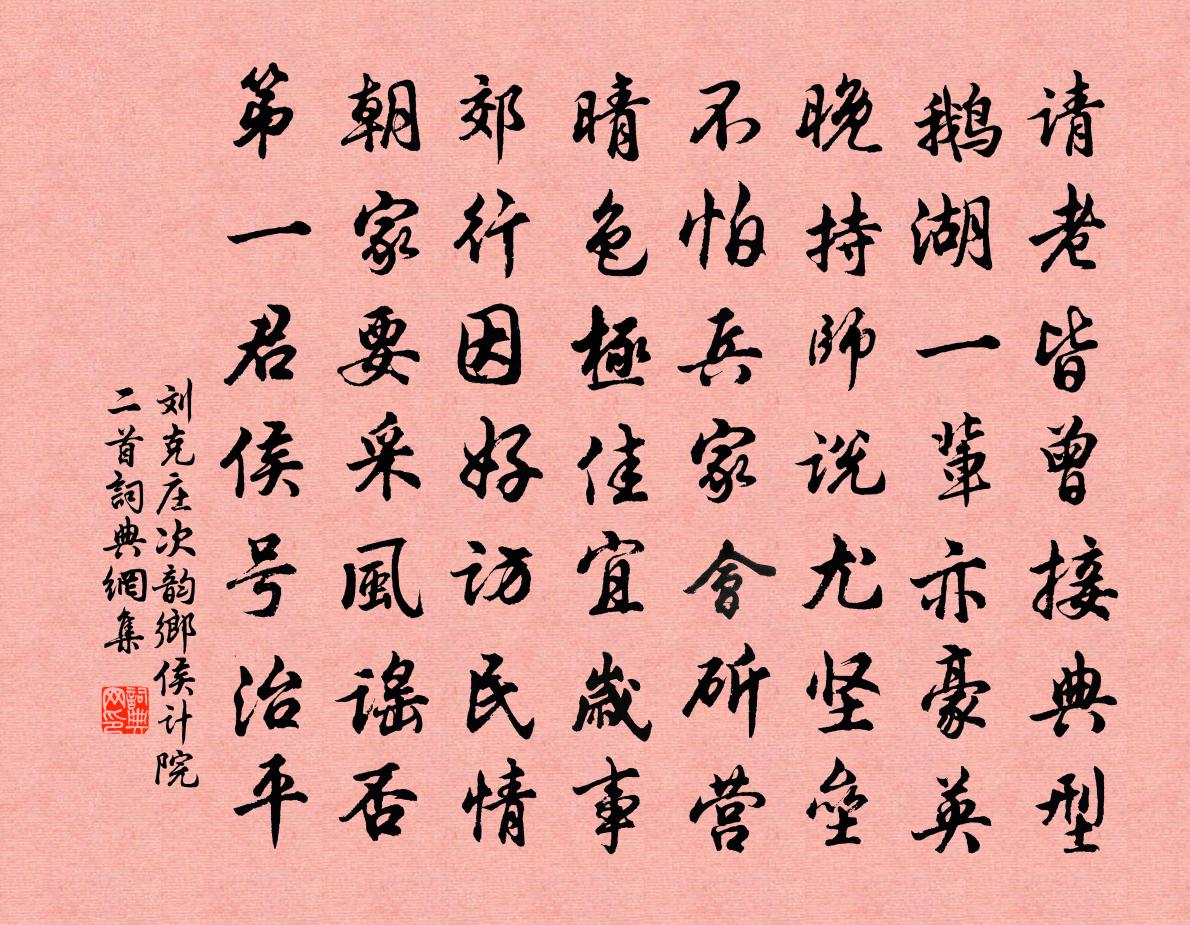 请老皆曾接典型
鹅湖一輩亦豪英
晚持師说尤坚垒
不怕兵家會斫营
晴色極佳宜歲事
郊行因好访民情
朝家要采風谣否
第一君侯号治平
刘克庄次韵鄉侯计院
二首詞典網集
詞典網印